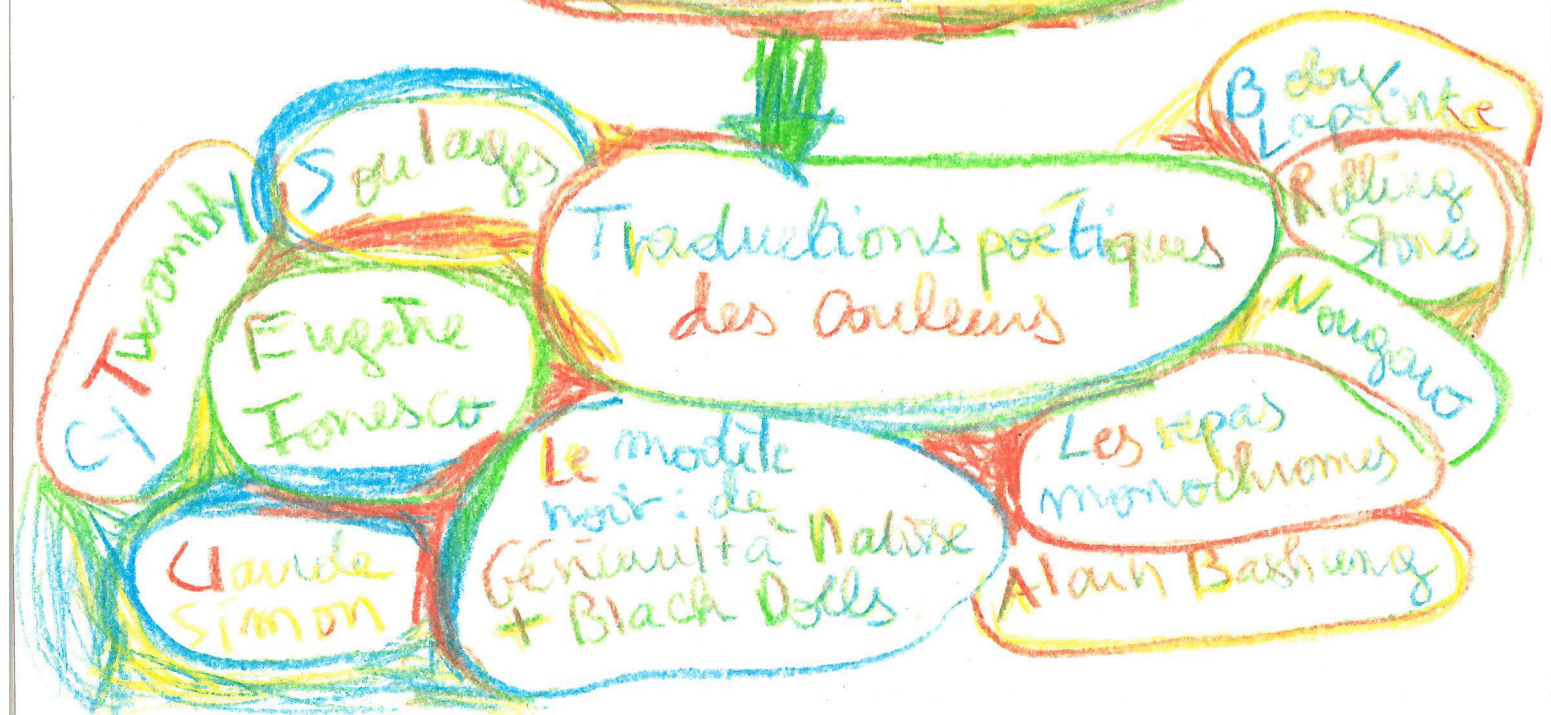 Soulages
Cy Twombly
Eugène
Ionesco
Claude
Simon
Traductions poétiques
des couleurs
Le modèle
noir : de
Géricault à Matisse
+ Black Dolls
Boby
Lapointe
Rolling
Stones
Nougaro
Les repas
monochromes
Alain Bashung